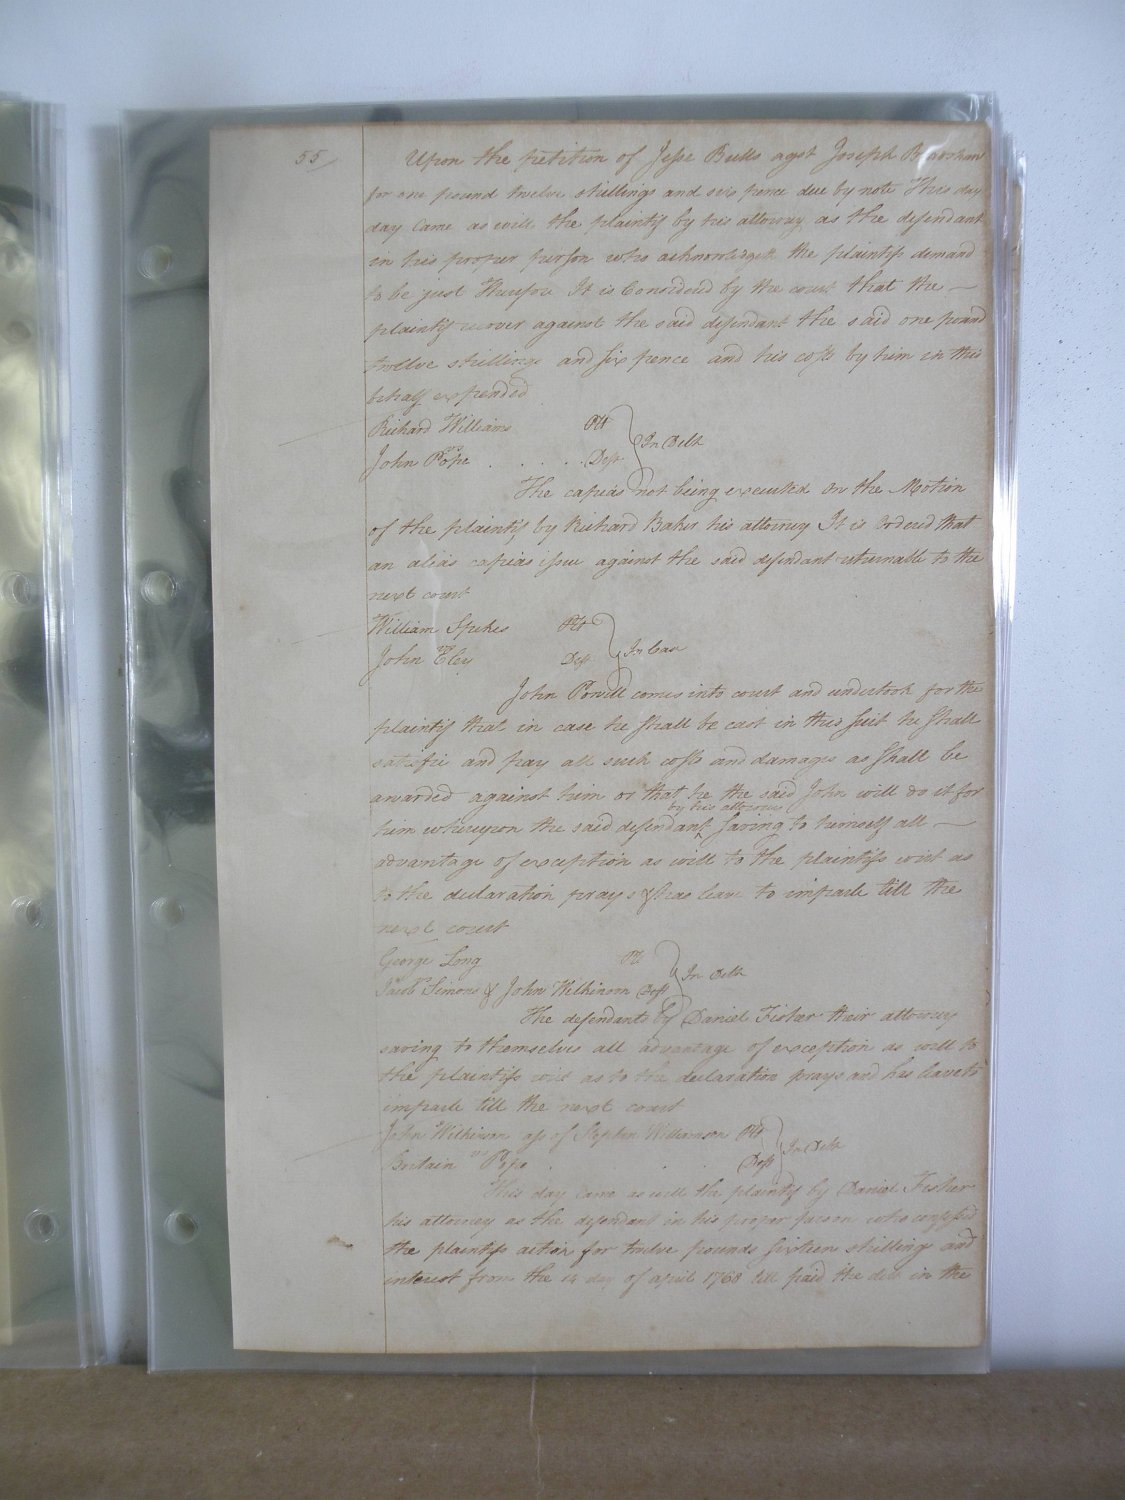 55/
Upon the petition of Jesse Bulls agst Joseph
for one pound twelve shillings and six pence due by note This day
day Came as well the plaintif by his attorney as the defendant
in his proper person who acknowledgeth the plaintifs demand
to be just Therefore It is Considered by the court that the —
plaintif recover against the said defendant the said one pound
twelve shillings and six pence and his costs by him in this
behalf expended
Richard Williams Plt
vs } In Debt
John Pope . . . . . Deft
The capias not being executed On the Motion
of the plaintif by Richard Baker his attorney It is Ordered that
an alias capias issue against the said defendant returnable to the
next court
William Spikes Plt
vs } In Case
John Eley Deft
John Powell comes into court and undertook for the
plaintif that in case he shall be cast in this suit he shall
satisfie and pay all such costs and damages as shall be
awarded against him or that he the said John will do it for
by his attorney
him whereupon the said defendant ^ saving to himself all —
advantage of exception as well to the plaintifs writ as
to the declaration prays & has leave to imparle till the
next court
George Long Plt
vs } In Debt
Jacob Simons & John Wilkinson Deft
The defendants by Daniel Fisher their attorney
saving to themselves all advantage of exception as well to
the plaintifs writ as to the declaration prays and has leave to
imparle till the next court
John Wilkinson ass of Stephen Williamson Plt
vs } In Debt
Britain Pope . . . Deft
This day came as well the plaintif by Daniel Fisher
his attorney as the defendant in his proper person who confessed
the plaintifs action for twelve pounds sixteen shillings and
interest from the 14 day of april 1768 till paid the debt in the